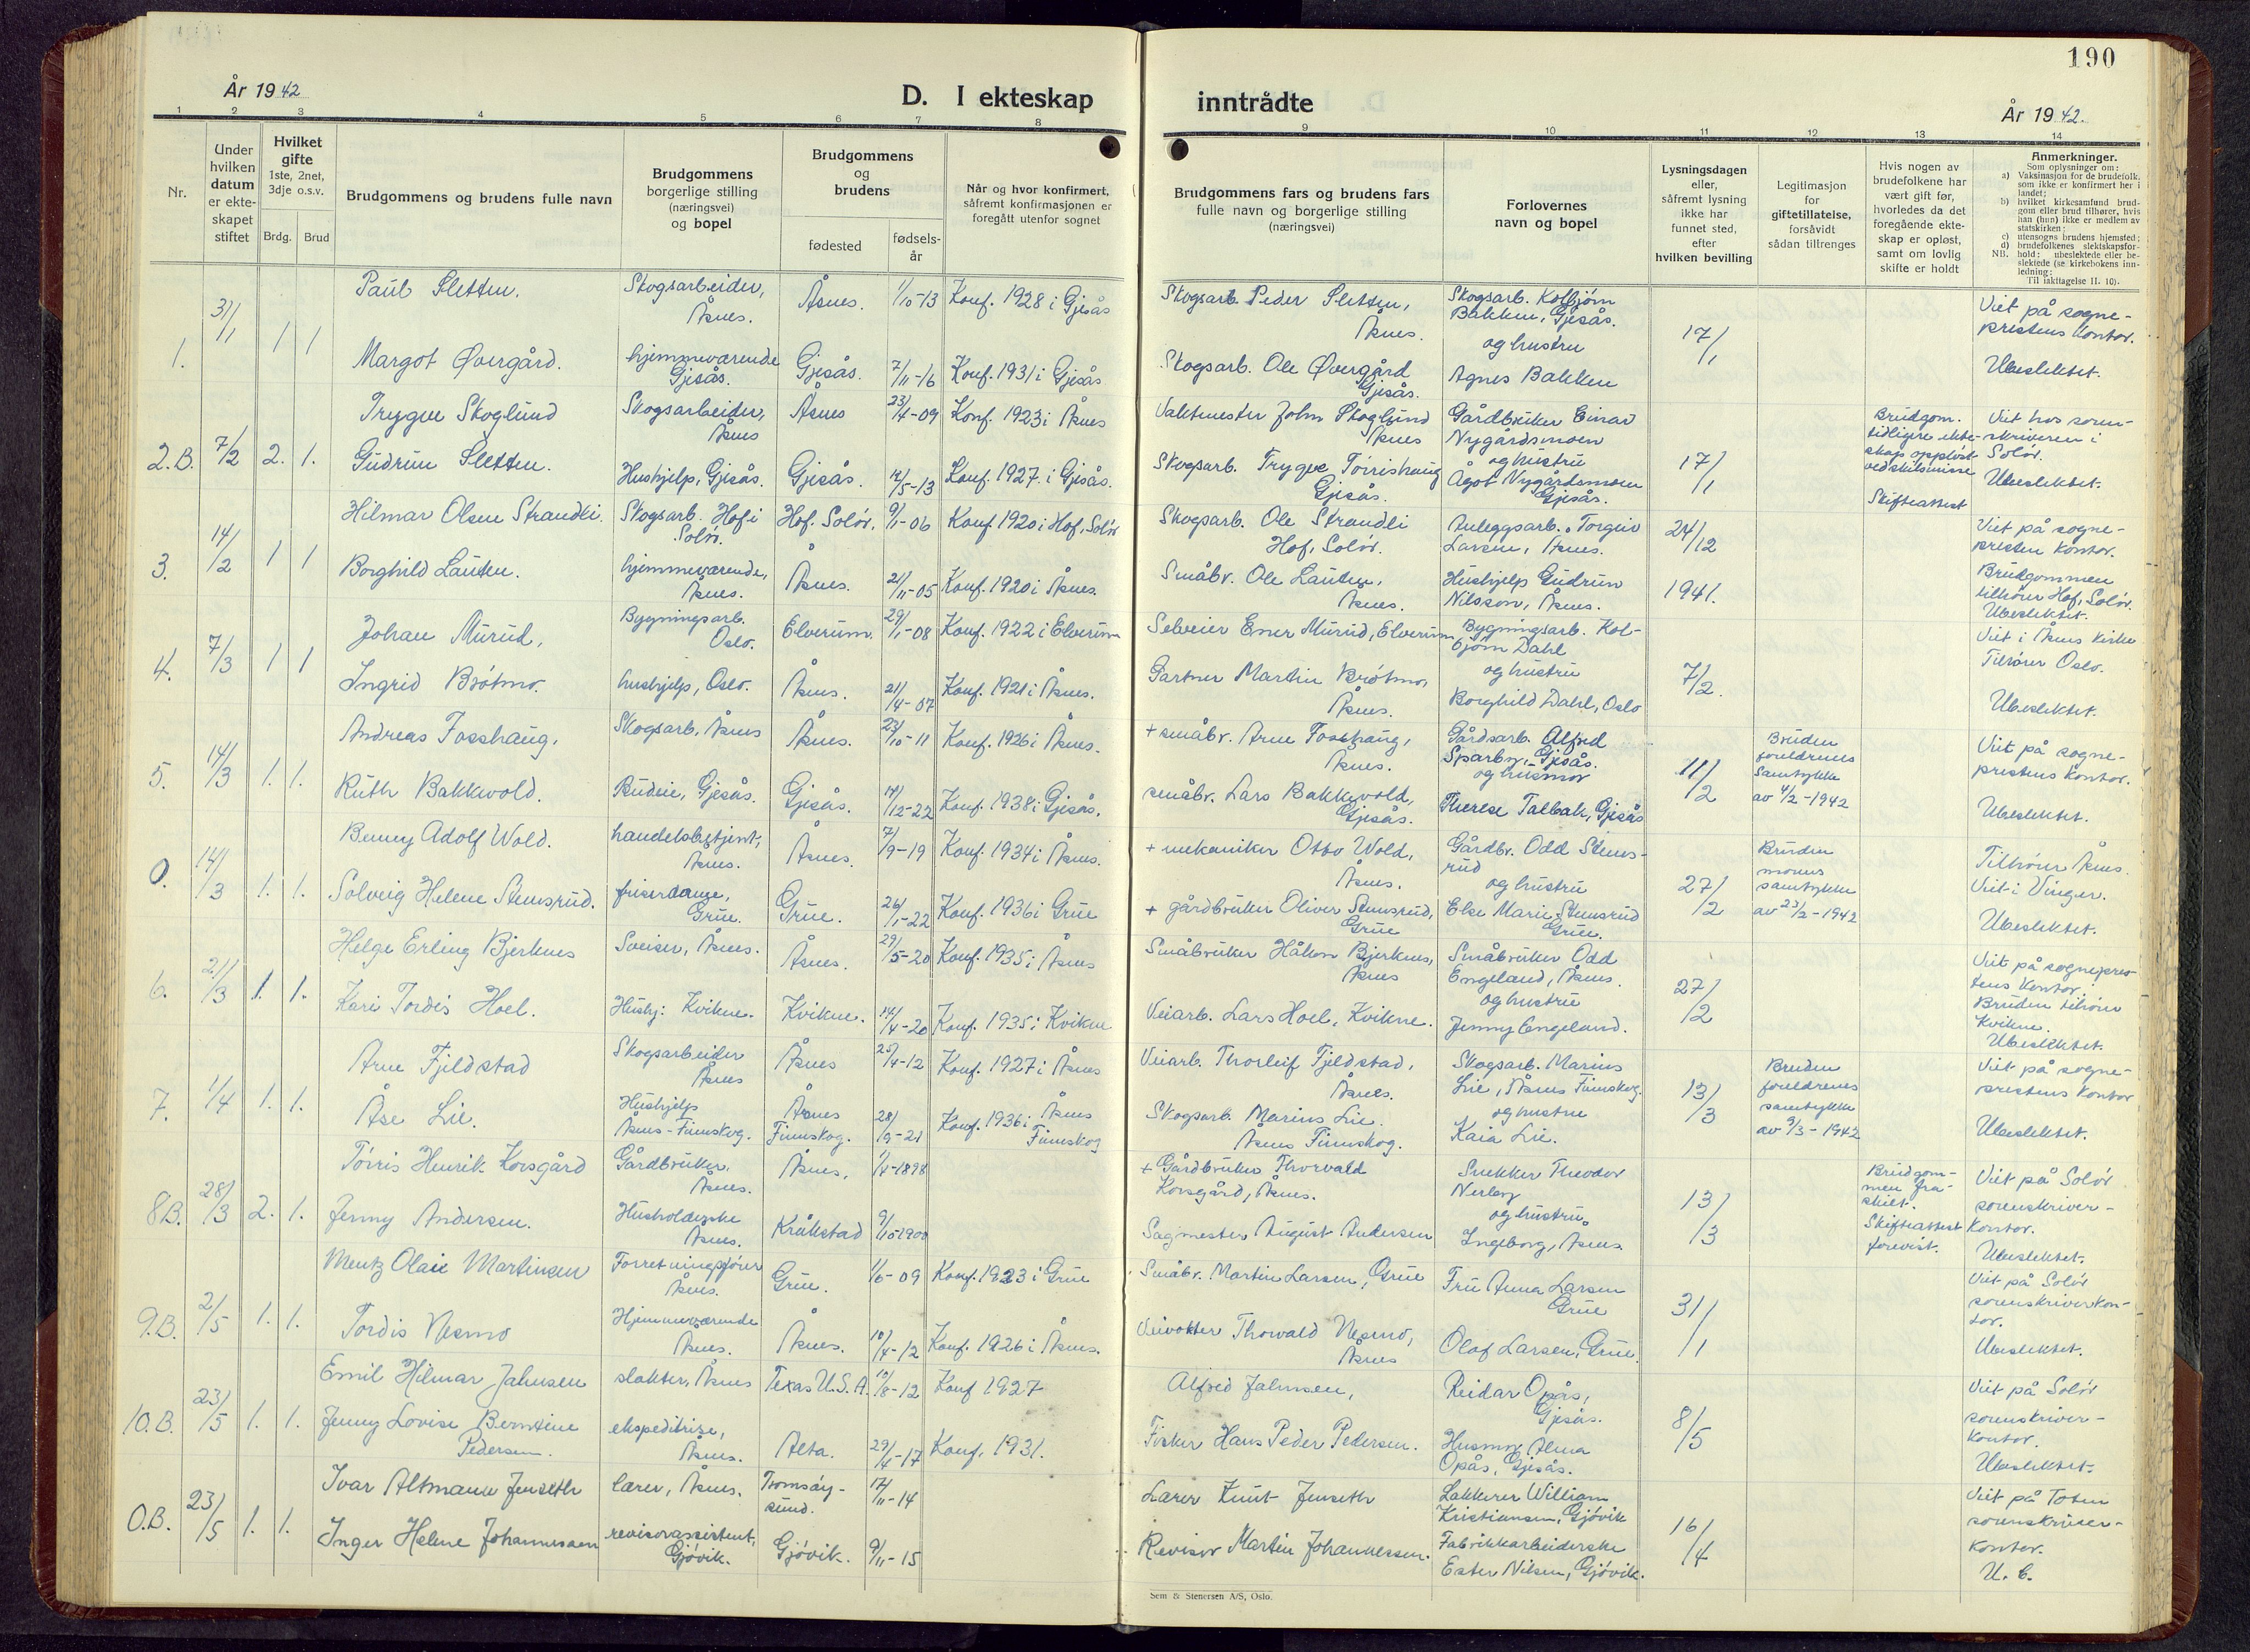 190
År 1942
D. I ekteskap
inntrådte
År 1942.
1
2
3
4
5
6
7
8
9
10
11
12
13
14
Nr.
Under
hvilken
datum
er ekte-
skapet
stiftet
Hvilket
gifte
1ste, 2net,
3dje o.s.v.
Brdg.
Brud
Brudgommens og brudens fulle navn
Brudgommens
borgerlige stilling
(næringsvei)
og bopel
Brudgommens
og
brudens
fødested
fødsels-
år
Når og hvor konfirmert,
såfremt konfirmasjonen er
foregått utenfor sognet
Brudgommens fars og brudens fars
fulle navn og borgerlige stilling
(næringsvei)
Forlovernes
navn og bopel
Lysningsdagen
eller,
såfremt lysning
ikke har
funnet sted,
efter
hvilken bevilling
Legitimasjon
for
giftetillatelse,
forsåvidt
sådan tiltrenges
Hvis nogen av
brudefolkene har
vært gift før,
hvorledes da det
foregående ekte-
skap er opløst,
samt om lovlig
skifte er holdt
Anmerkninger.
Som oplysninger om:
a) Vaksinasjon for de brudefolk,
som ikke er konfirmert her i
landet;
b) hvilket kirkesamfund brud-
gom eller brud tilhører, hvis
han (hun) ikke er medlem av
statskirken;
c) utensogns brudens hjemsted;
d) brudefolkenes slektskapsfor-
hold: ubeslektede eller be-
slektede (se kirkebokens inn-
ledning:
NB. Til iakttagelse II. 10).
1.
31/1
1
1
Paul Sletten.
Skogsarbeider,
Åsnes.
Åsnes.
1/10-13
Konf. 1928 i Gjesås
Skogsarb. Peder Sletten,
Åsnes.
Skogsarb. Kolbjørn
Bakken, Gjesås.
og hustru
Agnes Bakken
17/1
Viet på sogne-
prestens kontor.
Ubeslektet.
Margot Øvergård.
hjemmeværende
Gjesås.
Gjesås.
7/11-16
Konf. 1931 i Gjesås
Skogsarb. Ole Øvergård
Gjesås.
2.B.
7/2
2.
1.
Trygve Skoglund
Skogsarbeider,
Åsnes
Åsnes
23/4-09
Konf. 1923 i Åsnes
Vaktmester John Skoglund
Åsnes
Gårdbruker Einar
Nygårdsmoen
og hustru
Ågot Nygårdsmoen
Gjesås.
17/1
Brudgom.
tidligere ekte-
skap oppløst
ved skilsmisse
Skifteattest
Viet hos soren-
skriveren i
Solør.
Ubeslektet.
Gudrun Sletten.
Hushjelp, Gjesås.
Gjesås.
12/5-13
Konf. 1927 i Gjesås.
Skogsarb. Trygve Tørrishaug
Gjesås.
3.
14/2
1
1
Hilmar Olsen Strandli.
Skogsarb. Hof i
Solør.
Hof. Solør.
9/1-06
Konf. 1920 i Hof, Solør
Skogsarb. Ole Strandli
Hof, Solør.
Anleggsarb. Torgeir
Larsen, Åsnes.
Hushjelp Gudrun
Nilsson, Åsnes.
24/12
1941.
Viet på sogne-
presten kontor.
Brudgommen
tilhører Hof, Solør.
Ubeslektet.
Borghild Lauten.
hjemmeværende,
Åsnes.
Åsnes.
21/11-05
Konf. 1920 i Åsnes.
Småbr. Ole Lauten,
Åsnes.
4.
7/3
1
1
Johan Murud,
Bygningsarb.
Oslo.
Elverum.
29/1-08
Konf. 1922 i Elverum
Selveier Ener Murud, Elverum
Bygningsarb. Kol-
bjørn Dahl
og hustru
Borghild Dahl, Oslo
7/2.
Viet i Åsnes kirke
Tilhører Oslo.
Ubeslektet.
Ingrid Brøtmo.
hushjelp, Oslo.
Åsnes.
21/4-07
Konf. 1921 i Åsnes.
Gartner Martin Brøtmo,
Åsnes.
5.
14/3
1.
1.
Andreas Fosshaug,
Skogsarb, Åsnes
Åsnes.
23/10-11
Konf. 1926 i Åsnes.
+ småbr. Arne Fosshaug,
Åsnes.
Gårdsarb. Alfred
Sparby, Gjesås.
og husmor
Therese Talbak, Gjesås
11/2
Bruden
foreldrenes
Samtykke
av 4/2-1942
Viet på sogne-
prestens kontor.
Ubeslektet.
Ruth Bakkvold.
Budeie, Gjesås.
Gjesås.
17/12-22
Konf. 1938 i Gjesås.
småbr. Lars Bakkvold,
Gjesås.
0.
14/3
1.
1.
Benny Adolf Wold.
handelsbetjent,
Åsnes.
Åsnes.
7/9-19
Konf. 1934 i Åsnes.
+ mekaniker Otto Wold,
Åsnes.
Gårdbr. Odd Stems-
rud
og hustru
Else Marie Stemsrud
Grue.
27/2
Bruden
morens
samtykke
av 23/2-1942
Tilhører Åsnes.
Viet i Vinger.
Ubeslektet.
Solveig Helene Stemsrud.
friserdame,
Grue.
Grue.
26/1-22
Konf. 1936 i Grue
+ gårdbruker Oliver Stemsrud,
Grue
6.
21/3
1.
1.
Helge Erling Bjerknes
Sveiser, Åsnes.
Åsnes.
29/5-20
Konf. 1935 i Åsnes
Småbruker Håkon Bjerknes,
Åsnes
Småbruker Odd
Engeland, Åsnes.
og hustru
Jenny Engeland.
27/2
Viet på sognepres-
tens kontor.
Bruden tilhører
Kvikne.
Ubeslektet.
Kari Tordis Hoel.
Hushj. Kvikne.
Kvikne.
14/4-20
Konf. 1935 i Kvikne
Veiarb. Lars Hoel, Kvikne.
7.
1/4
1.
1.
Arne Fjeldstad
Skogsarbeider
Åsnes
Åsnes
25/4-12
Konf. 1927 i Åsnes
Veiarb. Thorleif Fjeldstad,
Åsnes.
Skogsarb. Marius
Lie, Åsnes Finnskog.
og hustru
Kaia Lie.
13/3
Bruden
foreldrenes
samtykke
av 9/3-1942
Viet på sogne-
prestens kontor
Ubeslektet.
Åse Lie.
Hushjelp
Åsnes-Finnskog.
Åsnes
Finnskog.
28/9-21
Konf. 1936 i Åsnes
Finnskog
Skogsarb. Marius Lie.
Åsnes Finnskog.
8B.
28/3
2.
1.
Tørris Henrik Korsgård
Gårdbruker.
Åsnes.
Åsnes.
1/4-1898
+ Gårdbruker Thorvald
Korsgård, Åsnes.
Snekker Theodor
Nerby
og hustru
Ingeborg, Åsnes.
13/3
Brudgom-
men fra-
skilt.
Skifteattest
forevist.
Viet på Solør
sorenskriver-
kontor.
Ubeslektet.
Jenny Andersen.
Husholderske
Åsnes.
Kråkstad
9/10-1900
Sagmester August Andersen
9.B.
2/5
1.
1.
Mentz Olai Martinsen
Forretningsfører
Åsnes.
Grue.
1/6-09
Konf. 1923 i Grue
Småbr. Martin Larsen, Grue
Fru Anna Larsen
Grue
Olaf Larsen, Grue.
31/1
Viet på Solør
sorenskriverkon-
tor.
Ubeslektet.
Tordis Nesmo
Hjemmeværende
Åsnes.
Åsnes.
10/4-12
Konf. 1926 i Åsnes.
Veivokter Thorvald Nesmo,
Åsnes
10.B.
23/5
1.
1.
Emil Hilmar Jahnsen
slakter, Åsnes
Texas U.S.A.
19/8-12
Konf 1927
Alfred Jahnsen,
Reidar Opås,
Gjesås.
Husmor Alma
Opås, Gjesås.
8/5
Viet på Solør
sorenskriver-
kontor.
Ubeslektet.
Jenny Lovise Berntine
Pedersen.
ekspeditrise,
Åsnes.
Alta.
29/4-17
Konf. 1931.
Fisker Hans Peder Pedersen.
0.B.
23/5
1.
1.
Ivar Altmann Jenseth
lærer, Åsnes.
Tromsøy-
sund.
17/11-14
Lærer Knut Jenseth
Lakkerer William
Kristiansen, Gjøvik
Fabrikkarbeiderske
Ester Nilsen, Gjøvik.
16/4
Viet på Toten
sorenskriver-
kontor.
U. b.
Inger Helene Johannessen
revisorassistent,
Gjøvik.
Gjøvik.
9/11-15
Revisor Martin Johannessen.
Sem & Stenersen A/S, Oslo.